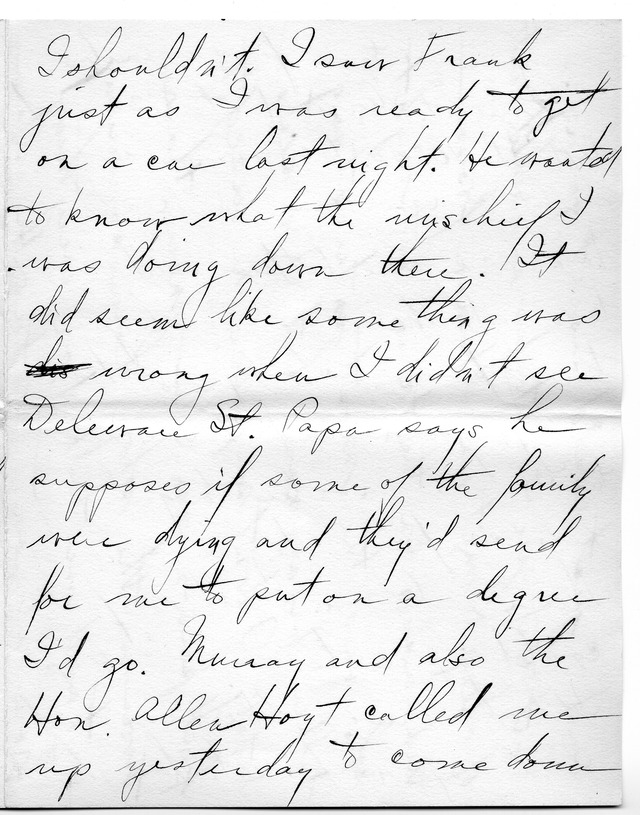 I shouldn't. I saw Frank
just as I was ready to get
on a car last night. He wanted
to know what the mischief I
was doing down there. It
did seem like something was
dis wrong when I didn't see
Deleware St. Papa says he
supposes if some of the family
were dying and they'd send
for me to put on a degree
I'd go. Murray and also the
Hon. Allen Hoyt called me
up yesterday to come down